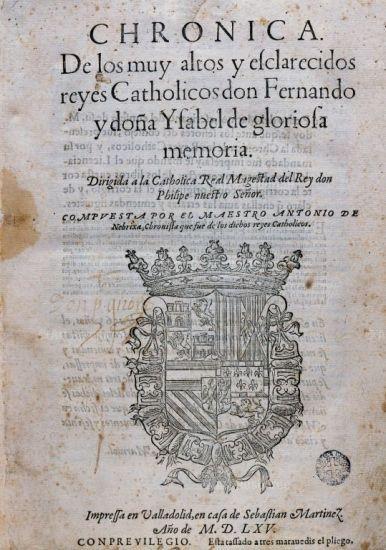 CHRONICA.
De los muy altos y esclarecidos
reyes Catholicos don Fernando
y doña Ysabel de gloriosa
memoria.
Dirigida a la Catholica Real Magestad del Rey don
Philipe nuestro Señor.
COMPVESTA POR EL MAESTRO ANTONIO DE
Nebrixa, Chronista que fue de los dichos reyes Catholicos.
Impressa en Valladolid, en casa de Sebastian Martinez
Año de M. D. LXV.
CON PREVILEGIO. Esta tassado a tres maravedis el pliego.